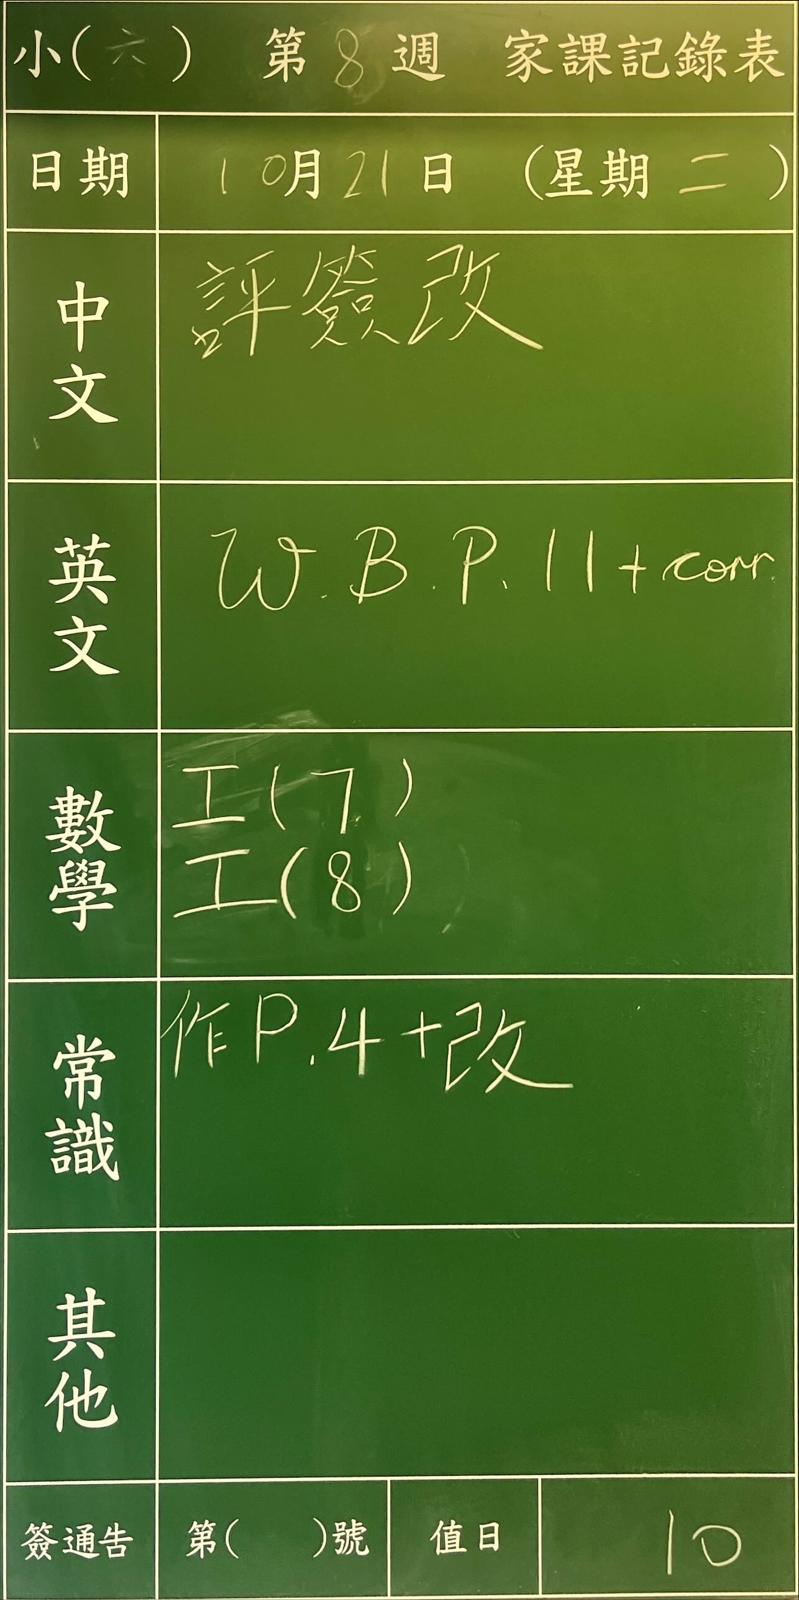 小(六) 第8週 家課記錄表
日期 10月21日 (星期二)
中文 評簽改
英文 W.B.P.11+corr.
數學 工(7)
工(8)
常識 作P.4+改
其他
簽通告 第( )號 值日 10